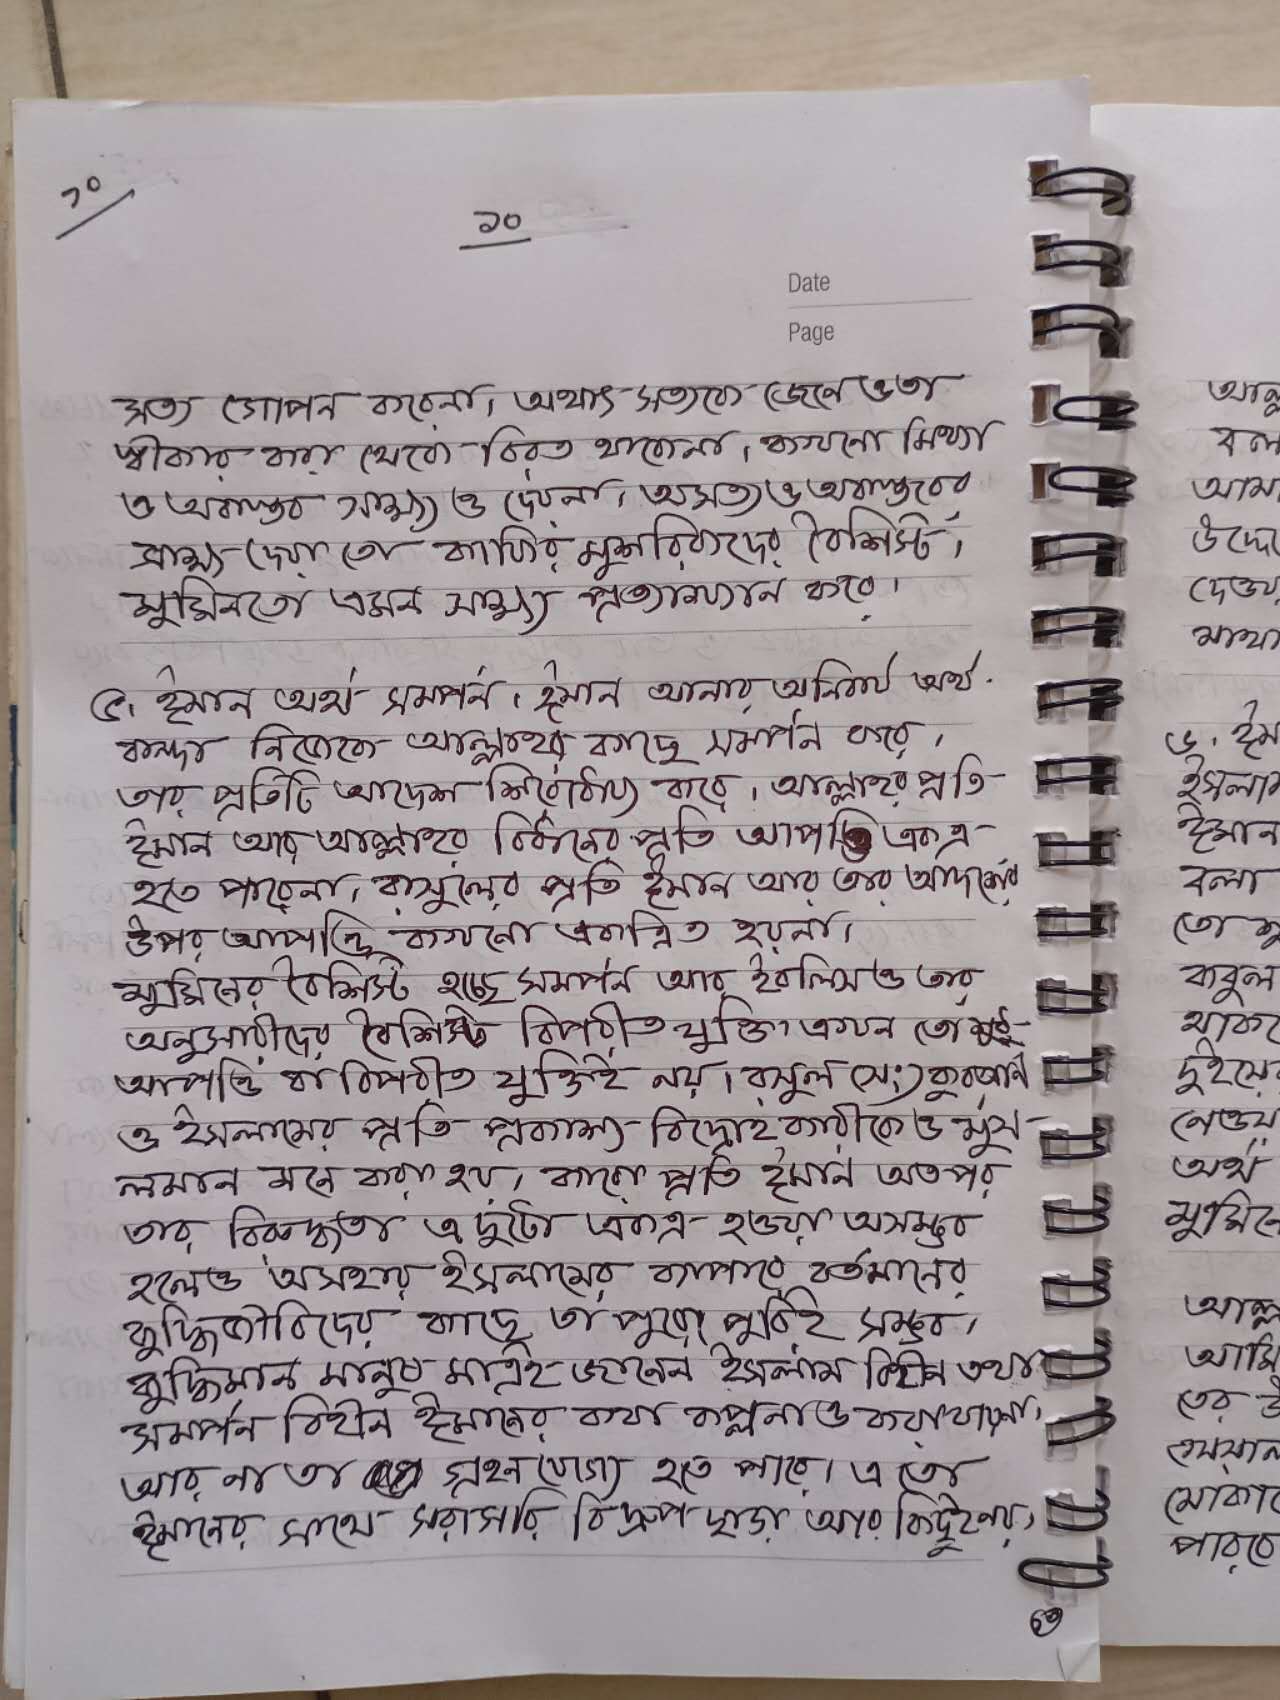 ১০
১০
Date
Page
সত্য গোপন করেনা। অথাৎ সত্যকে জেনে ও তা
স্বীকার করা থেকে বিরত থাকেনা। কখনো মিথ্যা
ও অবাস্তব সাক্ষ্য ও দেয়না। অসত্য ও অবাস্তবের
সাক্ষ্য দেয়া তো কাফির মুশরিকদের বৈশিস্ট।
মুমিনতো এমন সাক্ষ্য প্রত্যাক্ষান করে।
৫. ঈমান অর্থ সমর্পন। ঈমান আনার অনিবার্য অর্থ
বান্দা নিজেকে আল্লাহর কাছে সমর্পন করে।
তার প্রতিটি আদেশ শিরোর্ধায্য করে। আল্লাহর প্রতি
ঈমান আর আল্লাহর বির্ধানের প্রতি আপত্তি একত্র
হতে পারেনা। রাসুলের প্রতি ঈমান আর তার আদর্শের
উপর আপত্তি কখনো একত্রিত হয়না।
মুমিনের বৈশিস্ট হচ্ছে সমর্পন আর ইবলিস ও তার
অনুসারীদের বৈশিস্ট বিপরীত যুক্তি। এখন তো শুধু
আপত্তি বা বিপরীত যুক্তিই নয়। রসুল (সঃ) কুরআন
ও ইসলামের প্রতি প্রকাশ্য বিদ্রোহ কারীকেও মুস-
লমান মনে করা হয়। কারো প্রতি ঈমান অতপর
তার বিরুদ্ধতা এ দুটো একত্র হওয়া অসম্ভব
হলেও অসহায় ইসলামের ব্যাপারে বর্তমানের
বুদ্ধিজীবিদের কাছে তা পুরো পুরিই সম্ভব।
বুদ্ধিমান মানুষ মাত্রই জানেন ইসলাম বিহীন তথা
সমর্পন বিহীন ঈমানের কথা কল্পনাও করা যায়না।
আর না তা গ্রহন যোগ্য হতে পারে। এ তো
ঈমানের সাথে সরাসরি বিদ্রুপ ছাড়া আর কিছুই নয়।